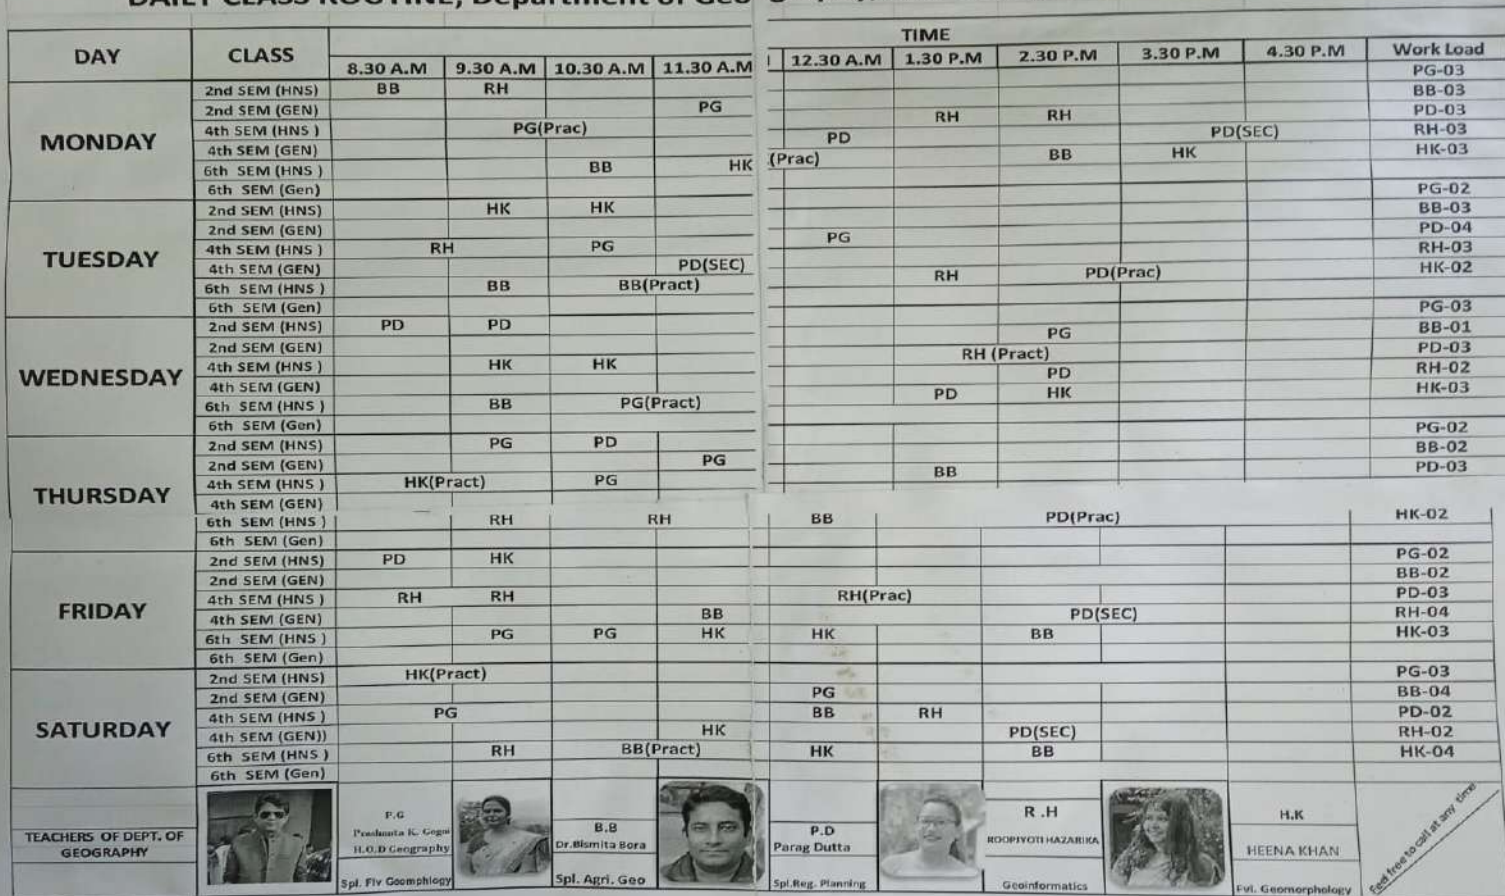 DAILY CLASS ROUTINE, Department of Geog
DAY CLASS TIME
8.30 A.M 9.30 A.M 10.30 A.M 11.30 A.M 12.30 A.M 1.30 P.M 2.30 P.M 3.30 P.M 4.30 P.M Work Load
PG-03
MONDAY
2nd SEM (HNS) BB RH BB-03
2nd SEM (GEN) PG RH RH PD-03
4th SEM (HNS ) PG(Prac) PD PD(SEC) RH-03
4th SEM (GEN) BB HK HK-03
6th SEM (HNS ) BB HK (Prac)
6th SEM (Gen) PG-02
TUESDAY
2nd SEM (HNS) HK HK BB-03
2nd SEM (GEN) PG PD-04
4th SEM (HNS ) RH PG RH-03
4th SEM (GEN) PD(SEC) RH PD(Prac) HK-02
6th SEM (HNS ) BB BB(Pract)
6th SEM (Gen) PG-03
WEDNESDAY
2nd SEM (HNS) PD PD PG BB-01
2nd SEM (GEN) RH (Pract) PD-03
4th SEM (HNS ) HK HK PD RH-02
4th SEM (GEN) PD HK HK-03
6th SEM (HNS ) BB PG(Pract)
6th SEM (Gen) PG-02
THURSDAY
2nd SEM (HNS) PG PD BB-02
2nd SEM (GEN) PG BB PD-03
4th SEM (HNS ) HK(Pract) PG
4th SEM (GEN)
6th SEM (HNS ) RH RH BB PD(Prac) HK-02
6th SEM (Gen)
FRIDAY
2nd SEM (HNS) PD HK PG-02
2nd SEM (GEN) BB-02
4th SEM (HNS ) RH RH RH(Prac) PD-03
4th SEM (GEN) BB PD(SEC) RH-04
6th SEM (HNS ) PG PG HK HK BB HK-03
6th SEM (Gen)
SATURDAY
2nd SEM (HNS) HK(Pract) PG-03
2nd SEM (GEN) PG BB-04
4th SEM (HNS ) PG BB RH PD-02
4th SEM (GEN)) HK PD(SEC) RH-02
6th SEM (HNS ) RH BB(Pract) HK BB HK-04
6th SEM (Gen)
TEACHERS OF DEPT. OF
GEOGRAPHY
P.G
Prashanta K. Gogoi
H.O.D Geography
Spl. Flv Geomphlogy
B.B
Dr.Bismita Bora
Spl. Agri. Geo
P.D
Parag Dutta
Spl.Reg. Planning
R .H
ROOPJYOTI HAZARIKA
Geoinformatics
H.K
HEENA KHAN
Fvl. Geomorphology
Feel free to call at any time